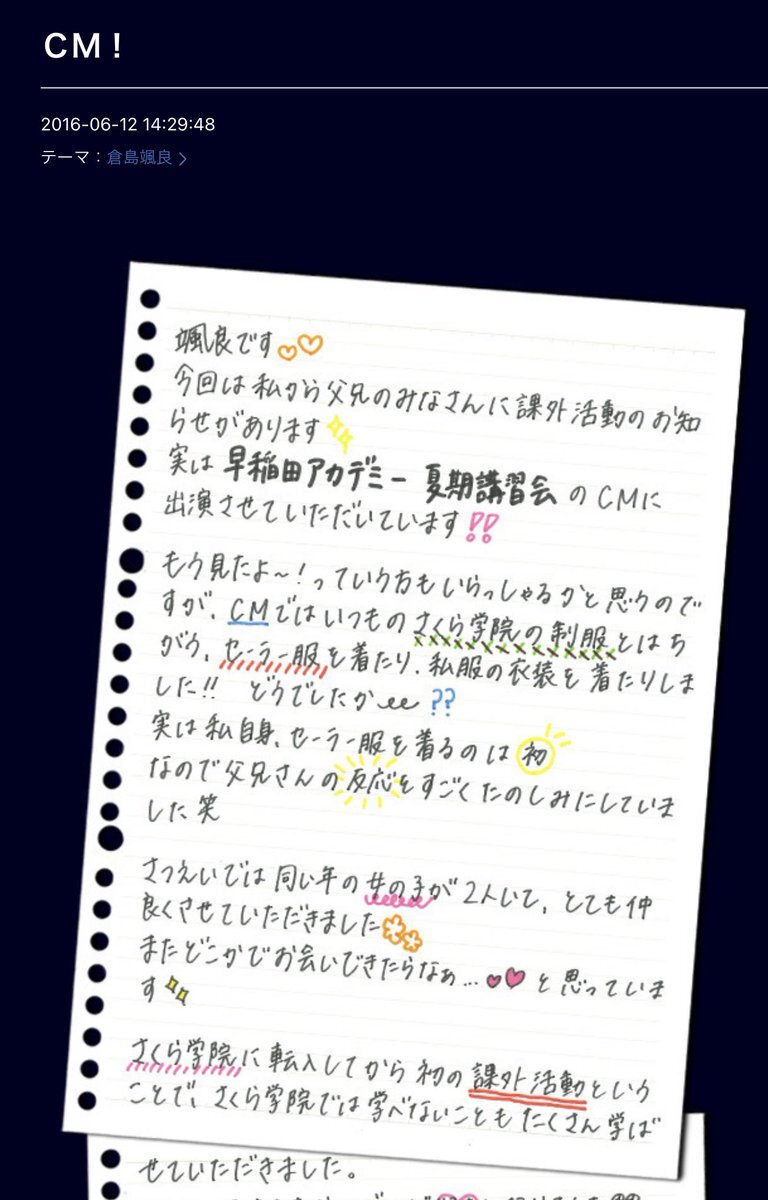 CM！
2016-06-12 14:29:48
テーマ：倉島颯良
颯良です
今回は私から父兄のみなさんに課外活動のお知
らせがあります
実は早稲田アカデミー 夏期講習会のCMに
出演させていただいています!!
もう見たよ〜！っていう方もいらっしゃるかと思うので
すが、CMではいつものさくら学院の制服とはち
がう、セーラー服を着たり、私服の衣装を着たりしま
した!! どうでしたか??
実は私自身、セーラー服を着るのは初
なので父兄さんの反応をすごくたのしみにしていま
した笑
さつえいでは同い年の女の子が2人いて、とても仲
良くさせていただきました
またどこかでお会いできたらなぁ...と思っていま
す
さくら学院に転入してから初の課外活動という
ことで、さくら学院では学べないこともたくさん学ば
せていただきました。